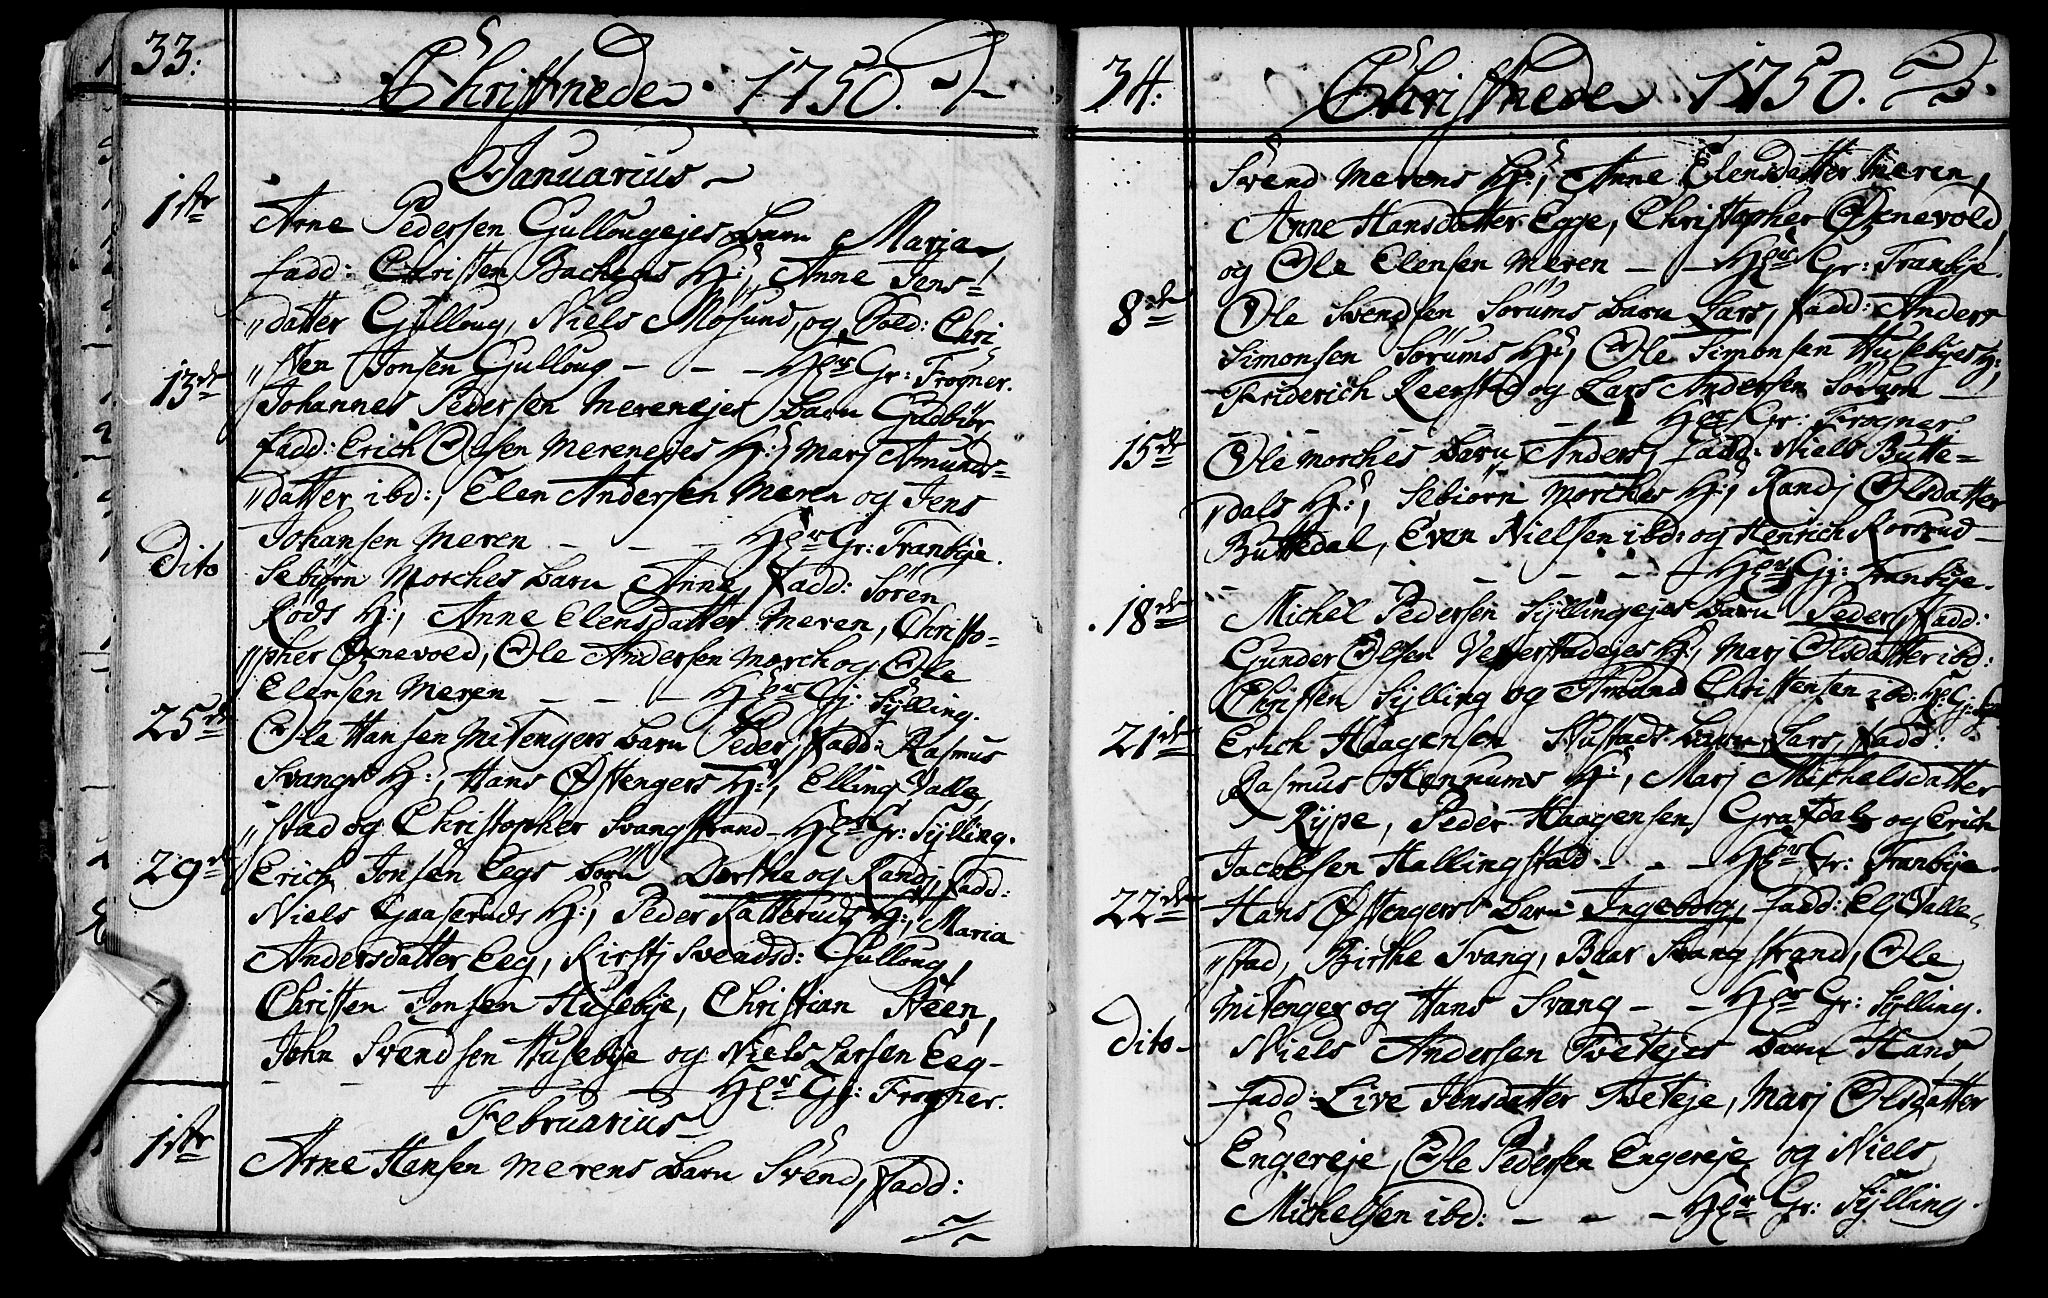 33:
Christnede. 1750.
Januarius
1ste
Arne Pedersen Gullougejes barn Maria,
fadd: Christen Bachens H:, Anne Jens-
"datter Gulloug, Niels Mösund, og Pold: Chri-
"sten Jonsen Gulloug - - - Hr Gr: Frogner.
13de
Johannes Pedersen Merenejes barn Gudbiör
fadd: Erich Olsen Merenejes H: Marj Amunds-
"datter ibd:, Elen Andersen Meren og Jens
Johansen Meren - - - Hr Gr: Tranbye.
Dito
Sebiörn Morches barn Anne, fadd: Sören
Röds H:, Anne Elensdatter Meren, Christo-
"pher Öxnevold, Ole Andersen Morch og Ole
Elensen Meren - - - Hr Gj: Sylling.
25de
Ole Hansen Mitengers barn Peder, fadd: Rasmus
Svangs H:, Hans Östengers H:, Elling Valle-
"stad og Christopher Svangstrand - Hr Gr: Sylling.
29de
Erich Jonsen Eegs börn Dorthe og Randj, fadd:
Niels Gaaseruds H:, Peder Katteruds H:, Maria
Andersdatter Eeg, Kirstj Svendsd: Gulloug,
Christen Jonsen Husebye, Christian Steen,
John Svendsen Husebye og Niels Larsen Eeg-
- - - Hr Gj: Frogner.
Februarius
1ste
Arne Hansen Merens barn Svend, fadd:
34:
Christnede 1750.
Svend Merens H:, Anne Elensdatter Meren,
Anne Hansdatter Egge, Christopher Öxnevold,
og Ole Elensen Meren - - Hr Gr: Tranbye.
8de
Ole Svendsen Sörums barn Lars, fadd: Anders
Simonsen Sörums H:, Ole Simonsen Husebyes H:,
Friderich Reerstad og Lars Andersen Sörum -
- - - Hr Gr: Frogner.
15de
Ole Morches barn Anders, fadd: Niels Butte-
"dals H:, Sebiörn Morches H:, Randj Olsdatter
Buttedal, Even Nielsen ibd: og Henrich Korsrud -
- - - Hr Gj: Tranbye.
18de
Michel Pedersen Syllingejes barn Peder, fadd:
Gunder Olsen Vefferstadejes H:, Marj Olsdatter ibd:
Christen Sylling og Amund Christensen ibd: Hr: Gj:
21de
Erich Haagensen Nustads barn Lars, fadd:
Rasmus Hennums H:, Marj Michelsdatter
Rype, Peder Haagensen Grafdal og Erich
Jacobsen Hallingstad - - - Hr Gr: Tranbye.
22de
Hans Östengers barn Ingeborg, fadd: El: Valle-
"stad, Birthe Svang, Baar Svangstrand, Ole
Mitenger og Hans Svang - - Hr Gr: Sylling.
Dito -
Niels Andersen Tvetejes barn Hans
fadd: Live Jensdatter Tveteje, Marj Olsdatter
Engereje, Ole Pedersen Engereje og Niels
Michelsen ibd: - - - Hr Gr: Sylling.